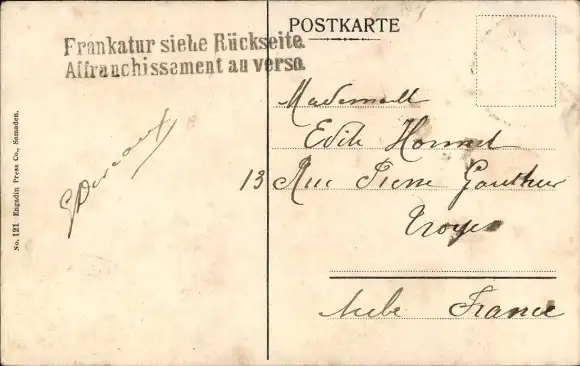 POSTKARTE
Frankatur siehe Rückseite.
Affranchissement au verso.
Mademoiselle
Edith
13 Rue Pierre Gauthier
Troyes
Aube France
No. 121 Engadin Press Co., Samaden.